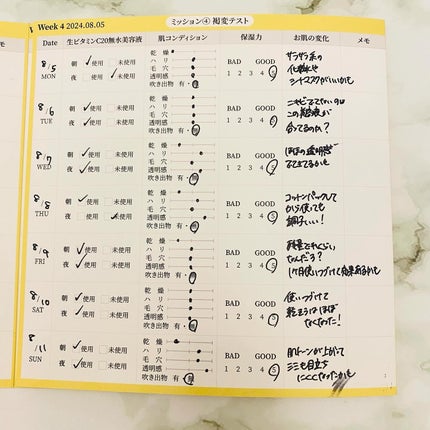 ミッション④ 褐変テスト
Week 4 2024.08.05
Date 生ビタミンC20無水美容液 肌コンディション 保湿力 お肌の変化 メモ
8/5 MON
朝 使用 未使用
夜 使用 未使用
乾燥
ハリ
毛穴
透明感
吹き出物 有・無
BAD GOOD
1 2 3 4 5
サラサラ系の
化粧水や
シートマスクがいいかも
8/6 TUE
朝 使用 未使用
夜 使用 未使用
乾燥
ハリ
毛穴
透明感
吹き出物 有・無
BAD GOOD
1 2 3 4 5
ニキビでてないのは
この美容液が
合ってるのか?
8/7 WED
朝 使用 未使用
夜 使用 未使用
乾燥
ハリ
毛穴
透明感
吹き出物 有・無
BAD GOOD
1 2 3 4 5
ほほの透明感
でてきてるかも
8/8 THU
朝 使用 未使用
夜 使用 未使用
乾燥
ハリ
毛穴
透明感
吹き出物 有・無
BAD GOOD
1 2 3 4 5
コットンパックして
から使っても
調子いい!
8/9 FRI
朝 使用 未使用
夜 使用 未使用
乾燥
ハリ
毛穴
透明感
吹き出物 有・無
BAD GOOD
1 2 3 4 5
なんだろ?
1ヶ月使いつづけて効果あるかも
8/10 SAT
朝 使用 未使用
夜 使用 未使用
乾燥
ハリ
毛穴
透明感
吹き出物 有・無
BAD GOOD
1 2 3 4 5
使いつづけて
乾そうはほぼ
なくなった!
8/11 SUN
朝 使用 未使用
夜 使用 未使用
乾燥
ハリ
毛穴
透明感
吹き出物 有・無
BAD GOOD
1 2 3 4 5
肌トーンが上がって
シミも目立ち
にくくなったかも